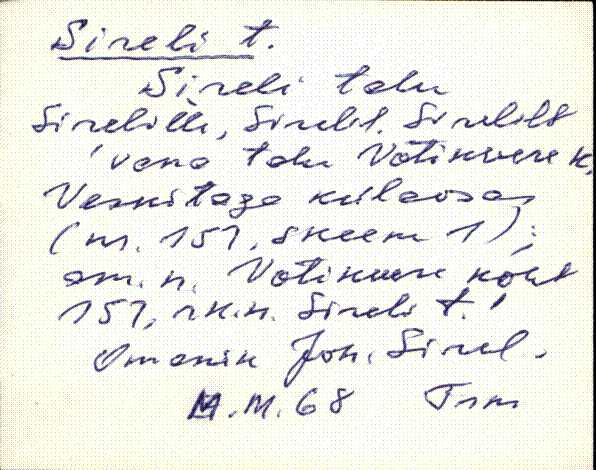 Sireli t.
Sireli talu
Sirelille, Sirelil, Sirelilt
'vana talu Võtikvere k.
Veskitaga külaosas
(nr. 151, skeem 1);
am. n. Võtikvere koht
151, rk.n. Sireli t.'
Omanik Joh. Sirel.
M.M. 68 Trm